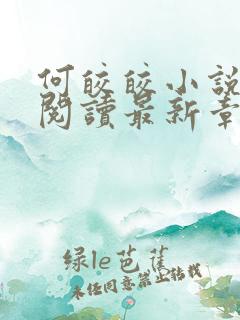 何皎皎小說
閱讀最新章
绿le芭蕉
未经同意禁止转载